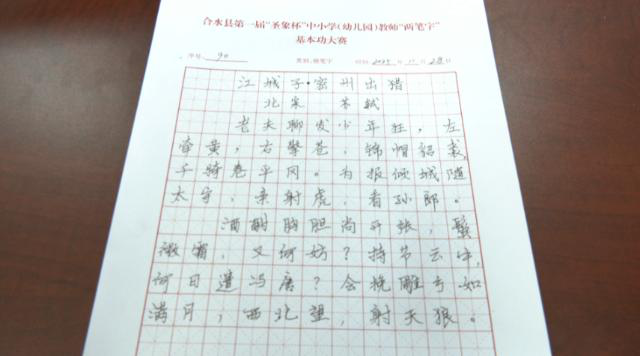 合水县第一届“圣象杯”中小学(幼儿园)教师“两笔字”
基本功大赛
序号 90 类别:硬笔字 时间:2025年11月28日
江城子·密州出猎
北宋 苏轼
老夫聊发少年狂，左
牵黄，右擎苍，锦帽貂裘，
千骑卷平冈。为报倾城随
太守，亲射虎，看孙郎。
酒酣胸胆尚开张，鬓
微霜，又何妨？持节云中，
何日遣冯唐？会挽雕弓如
满月，西北望，射天狼。